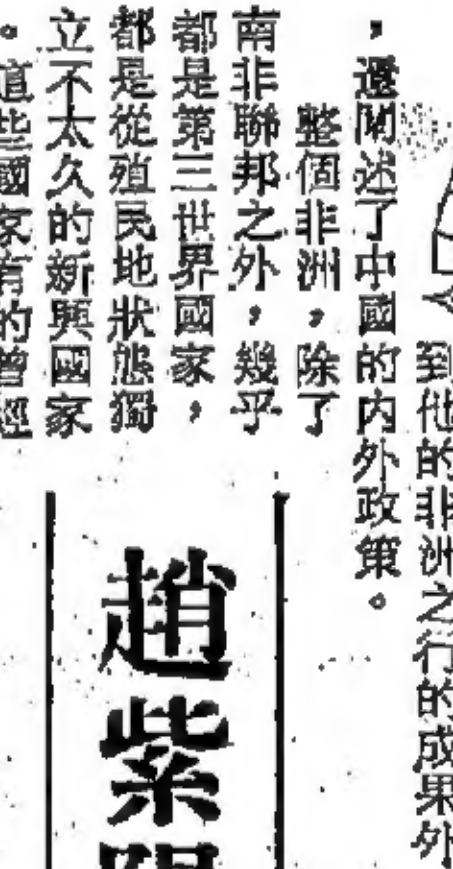 到他的非洲之行的成果外
，還闡述了中國的內外政策。
整個非洲，除了
南非聯邦之外，幾乎
都是第三世界國家，
都是從殖民地狀態獨
立不太久的新興國家
。這些國家有的曾經
趙紫